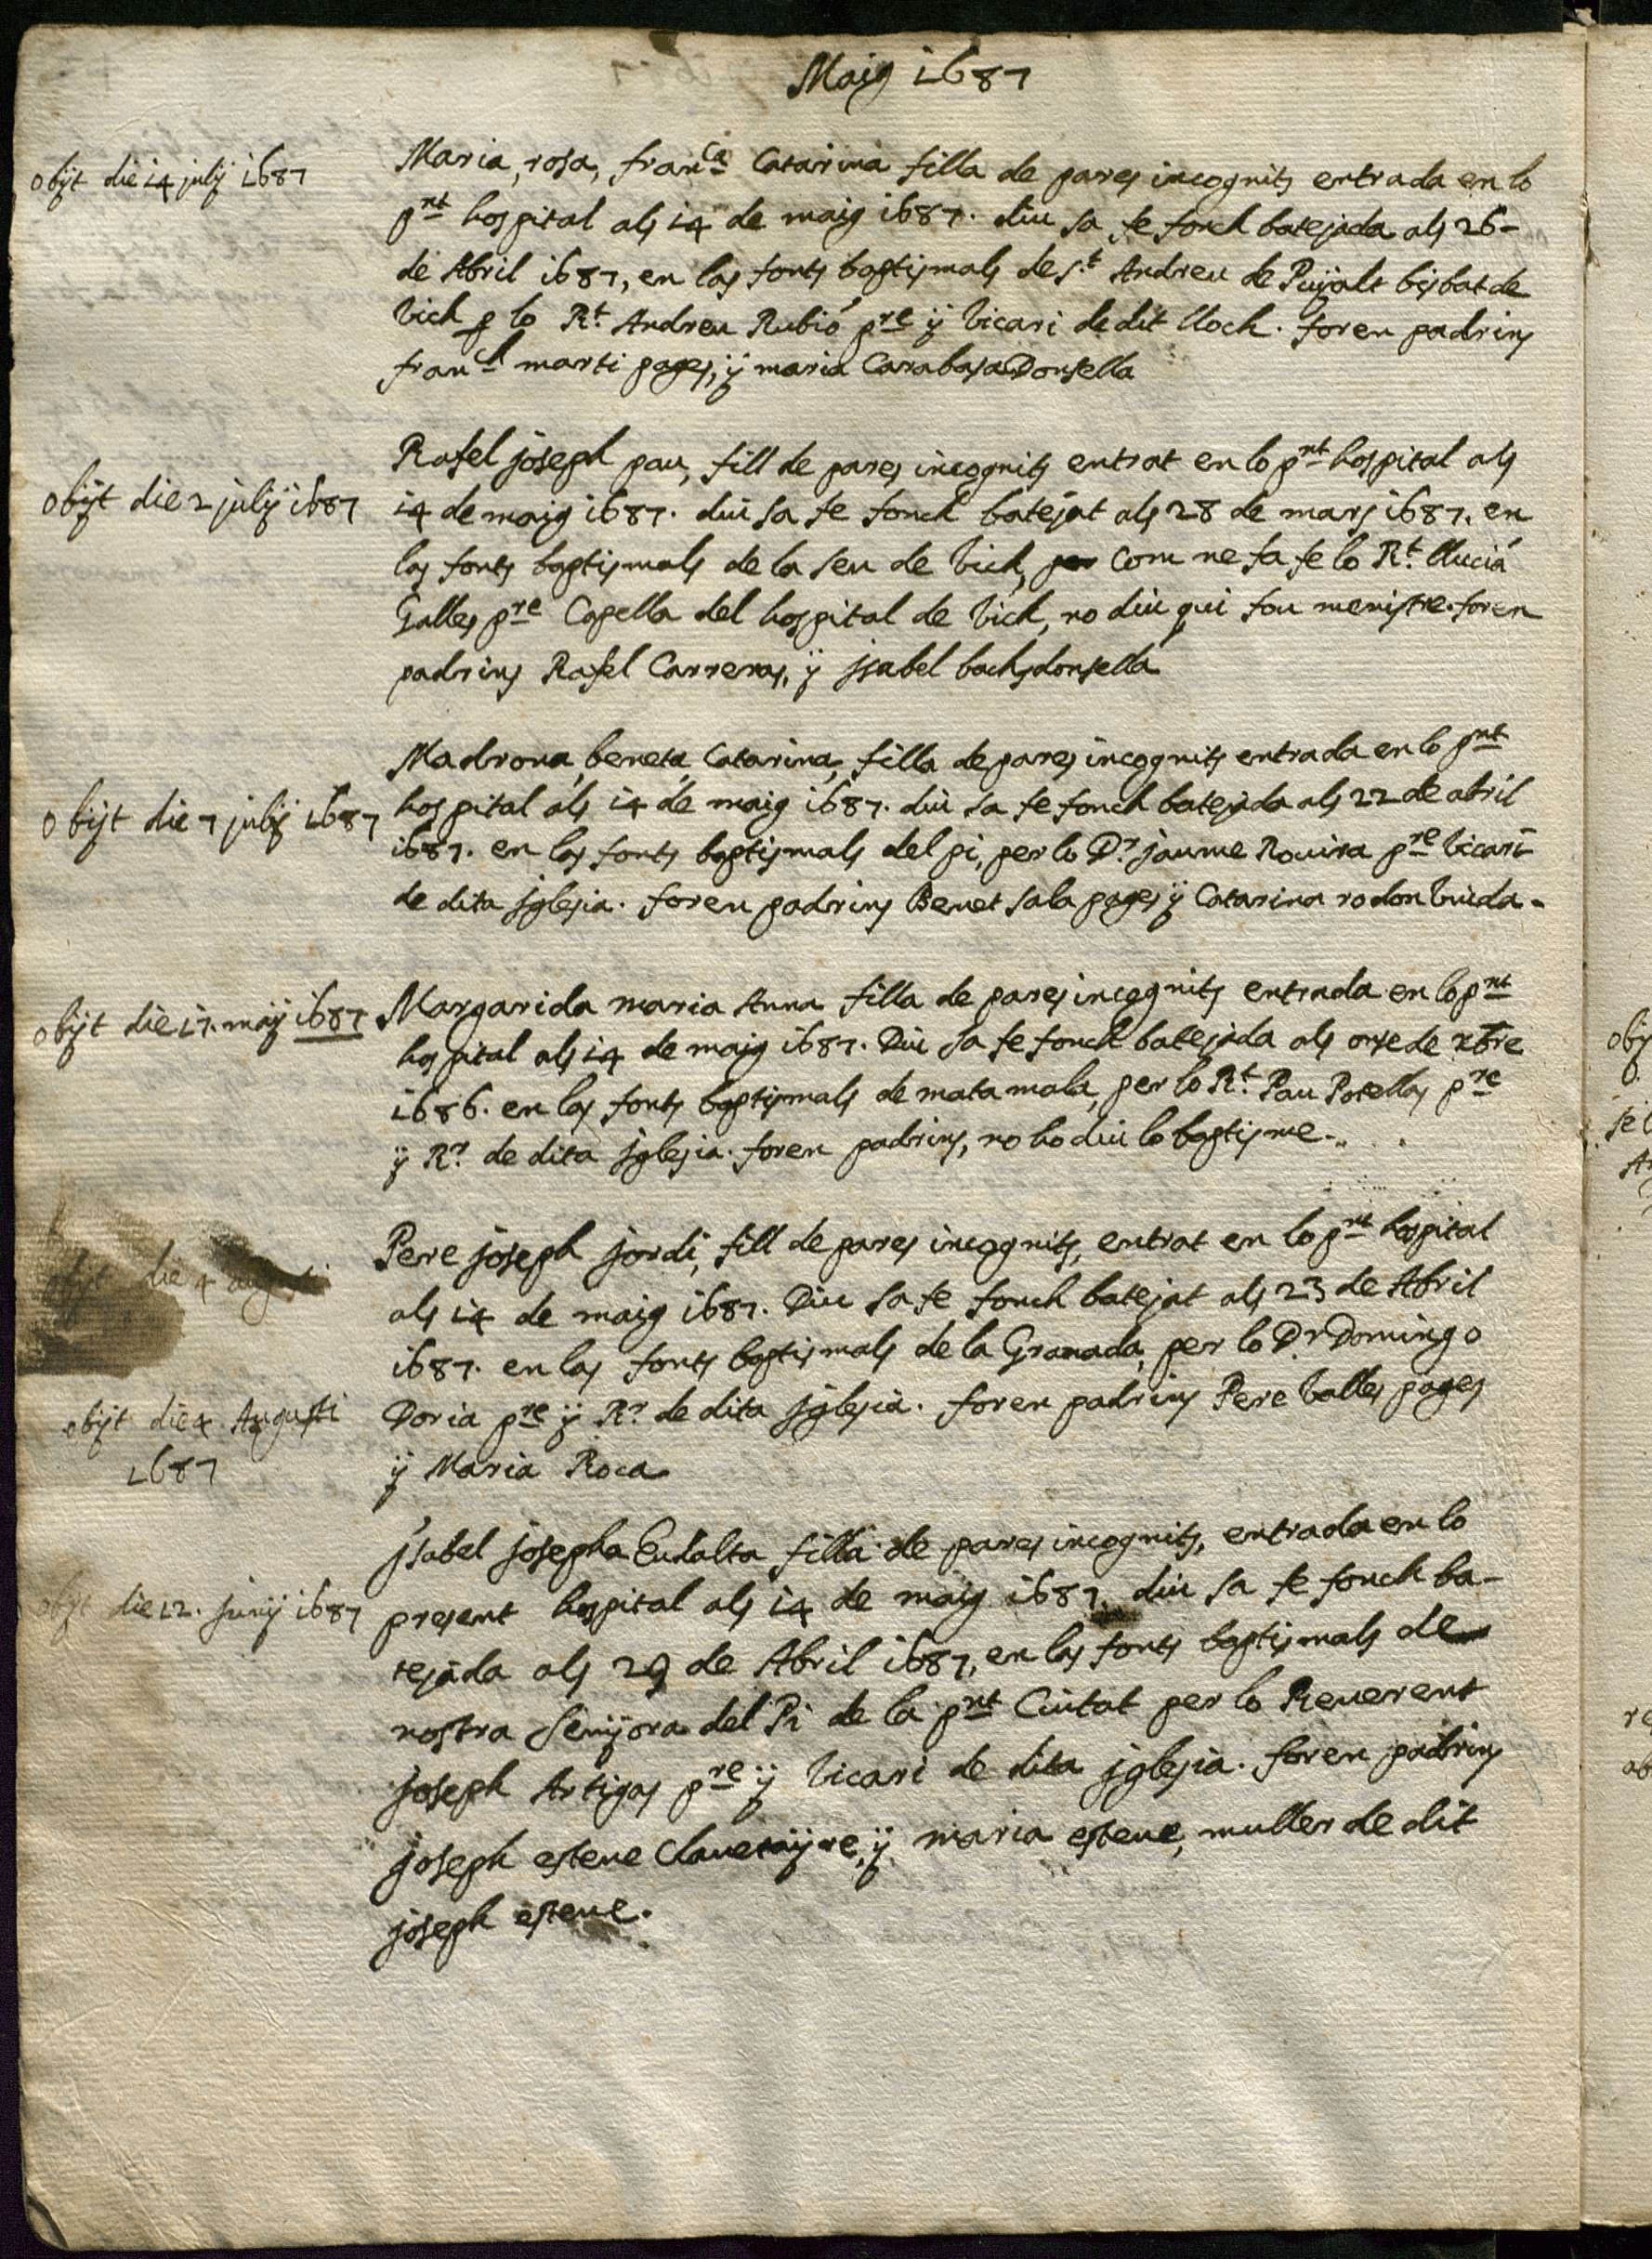 Maig 1687
obijt die 14 julij 1687
Maria, rosa, fran.ca Catarina filla de pares incognits entrada en lo
pnt hospital als 14 de maig 1687. diu sa fe fonch batejada als 26-
de Abril 1687, en las fonts baptismals de s.t Andreu de Pujalt bisbat de
Vich p lo R.t Andreu Rubió pre ÿ Vicari de dit lloch. foren padrins
fran.ch marti pages, ÿ maria Carabasa Donsella
obijt die 2 julij 1687
Rafel joseph pau, fill de pares incognits entrat en lo pnt hospital als
14 de maig 1687. diu sa fe fonch batejat als 28 de mars 1687. en
las fonts baptismals de la seu de Vich, per Com ne fa fe lo R.t Llucià
Galles pre Capella del hospital de Vich, no diu qui fou menistre. foren
padrins Rafel Carreras, ÿ jsabel bachs donsella
obijt die 7 julij 1687
Madrona, beneta, Catarina, filla de pares incognits entrada en lo pnt
hospital als 14 de maig 1687. diu sa fe fonch batejada als 22 de abril
1687. en las fonts baptismals del pi, per lo D.r jaume Rouira pre Vicari
de dita jglesia. foren padrins Benet sala pages ÿ Catarina rodon Viuda-
obijt die 17. maij 1687
Margarida maria Anna filla de pares incognits entrada en lo pnt
hospital als 14 de maig 1687. Diu sa fe fonch batejada als onse de xbre
1686. en las fonts baptismals de matamala, per lo R.t Pau Potellas pre
ÿ R.r de dita jglesia. foren padrins, no ho diu lo baptisme-
obijt die 4
Pere joseph jordi, fill de pares incognits, entrat en lo pnt hospital
als 14 de maig 1687. Diu sa fe fonch batejat als 23 de Abril
1687. en las fonts baptismals de la Granada, per lo D.r Domingo
Doria pre ÿ R.r de dita jglesia. foren padrins Pere Valles pages
ÿ Maria Roca
obijt die 4. Augusti
1687
jsabel josepha Eudalta filla de pares incognits, entrada en lo
present hospital als 14 de maig 1687. diu sa fe fonch ba-
tejada als 29 de Abril 1687, en las fonts baptismals de
nostra Senÿora del Pi de la pnt Ciutat per lo Reuerent
joseph Artigas pre ÿ Vicari de dita jglesia. foren padrins
joseph esteue Clauetaÿre, ÿ maria esteue, muller de dit
joseph esteue.
obijt die 12. junij 1687